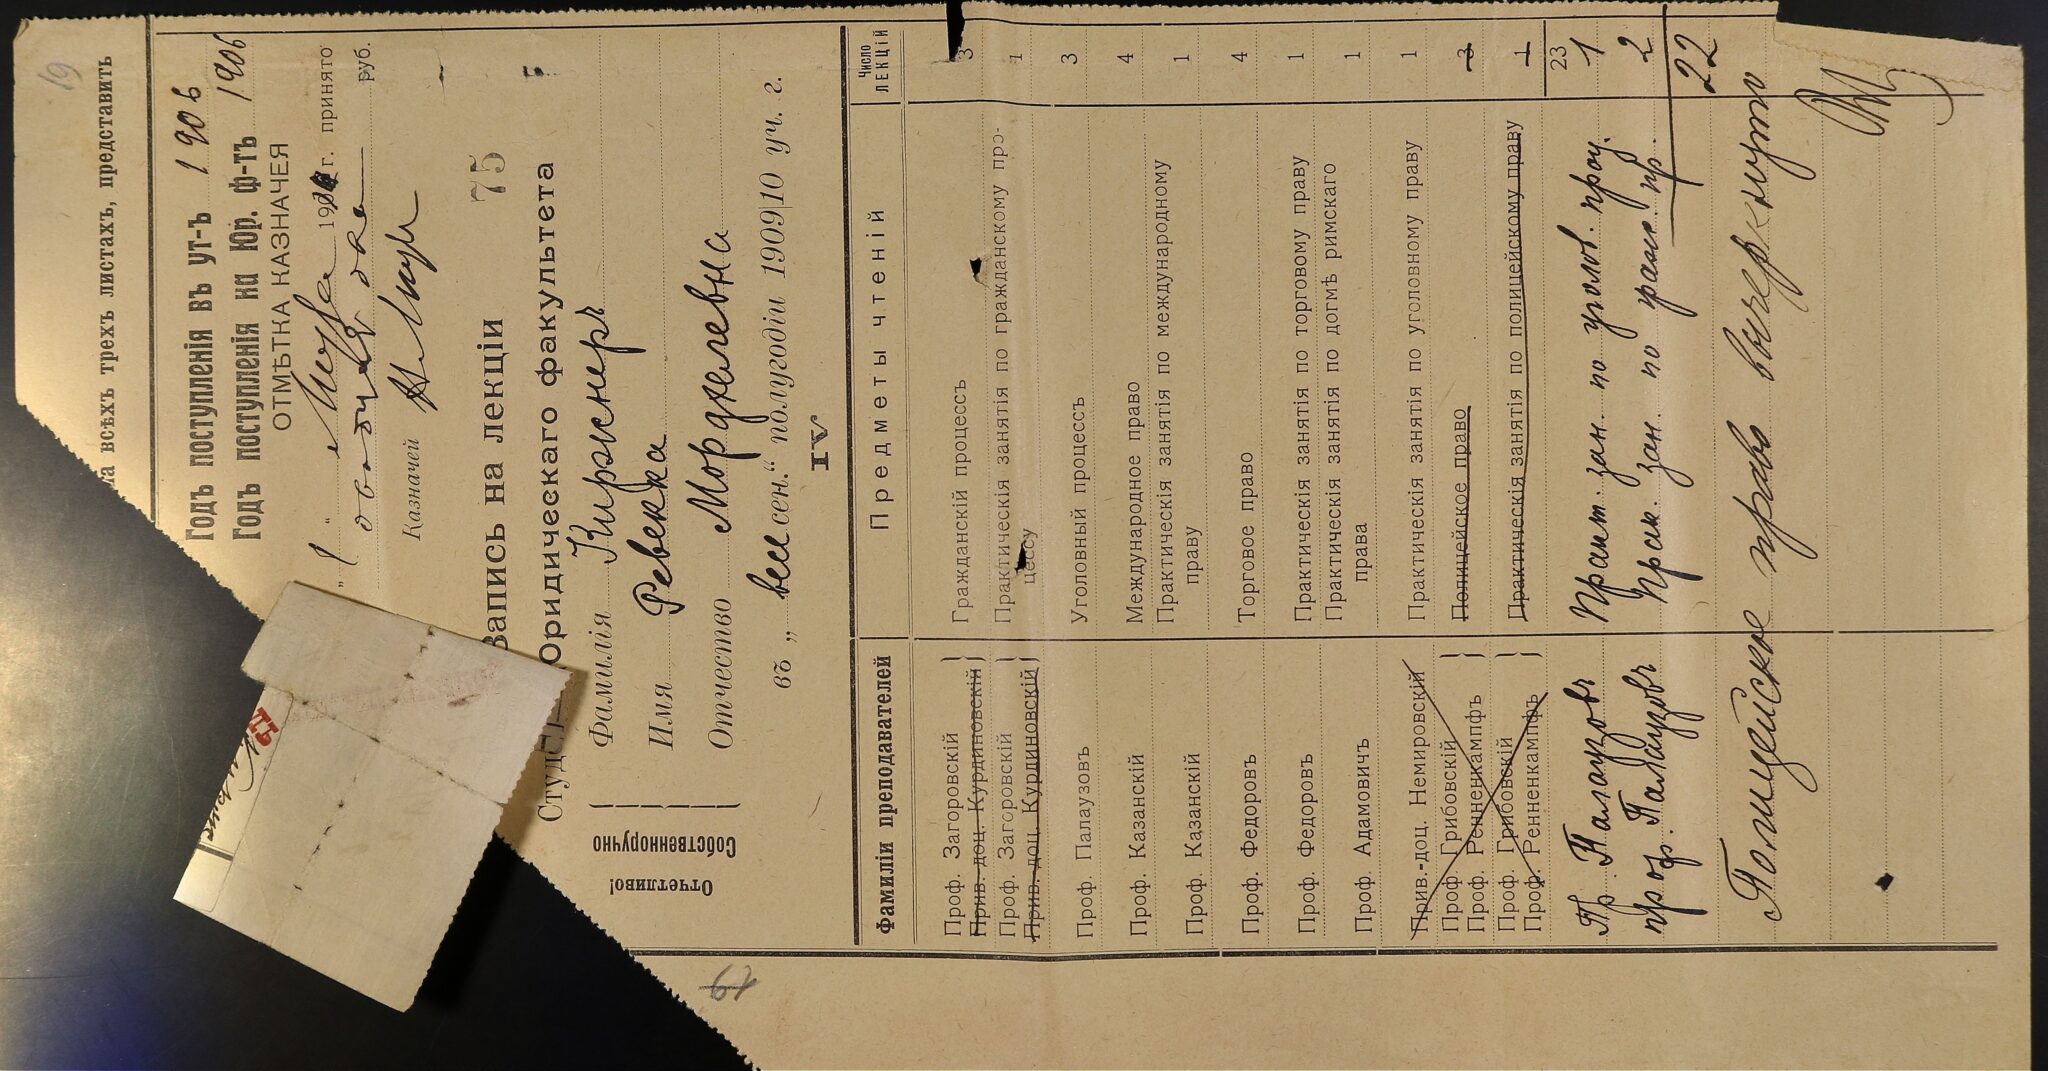 19
на всѣхъ трехъ листахъ, представить
Годъ поступленія въ ут-ъ 1906
Годъ поступленія на Юр. ф-тъ 1906
ОТМѢТКА КАЗНАЧЕЯ
„1“ г. принято
руб.
Казначей
Запись на лекціи 75
Юридическаго факультета
Фамилія Киржнеръ
Имя Ревекка
Отчество Мордхелевна
Собственноручно
Отчетливо!
въ „весен.“ полугодіи 1909|10 уч. г.
IV
Фамиліи преподавателей Предметы чтеній Число лекцій
Проф. Загоровскій Гражданскій процессъ 3
Прив.-доц. Курдиновскій
Проф. Загоровскій Практическія занятія по гражданскому про- 1
Прив.-доц. Курдиновскій цессу
Проф. Палаузовъ Уголовный процессъ 3
Проф. Казанскій Международное право 4
Проф. Казанскій Практическія занятія по международному 1
праву
Проф. Федоровъ Торговое право 4
Проф. Федоровъ Практическія занятія по торговому праву 1
Проф. Адамовичъ Практическія занятія по догмѣ римскаго 1
права
Прив.-доц. Немировскій Практическія занятія по уголовному праву 1
Проф. Грибовскій Полицейское право 3
Проф. Ренненкампфъ
Проф. Грибовскій Практическія занятія по полицейскому праву 1
Проф. Ренненкампфъ
23
Пр. Палаузовъ Практ. зан. по уголов. проц. 1
проф. Палаузовъ Прак. зан. по гражд. пр. 2
22
Полицейское право вычеркнуто
67